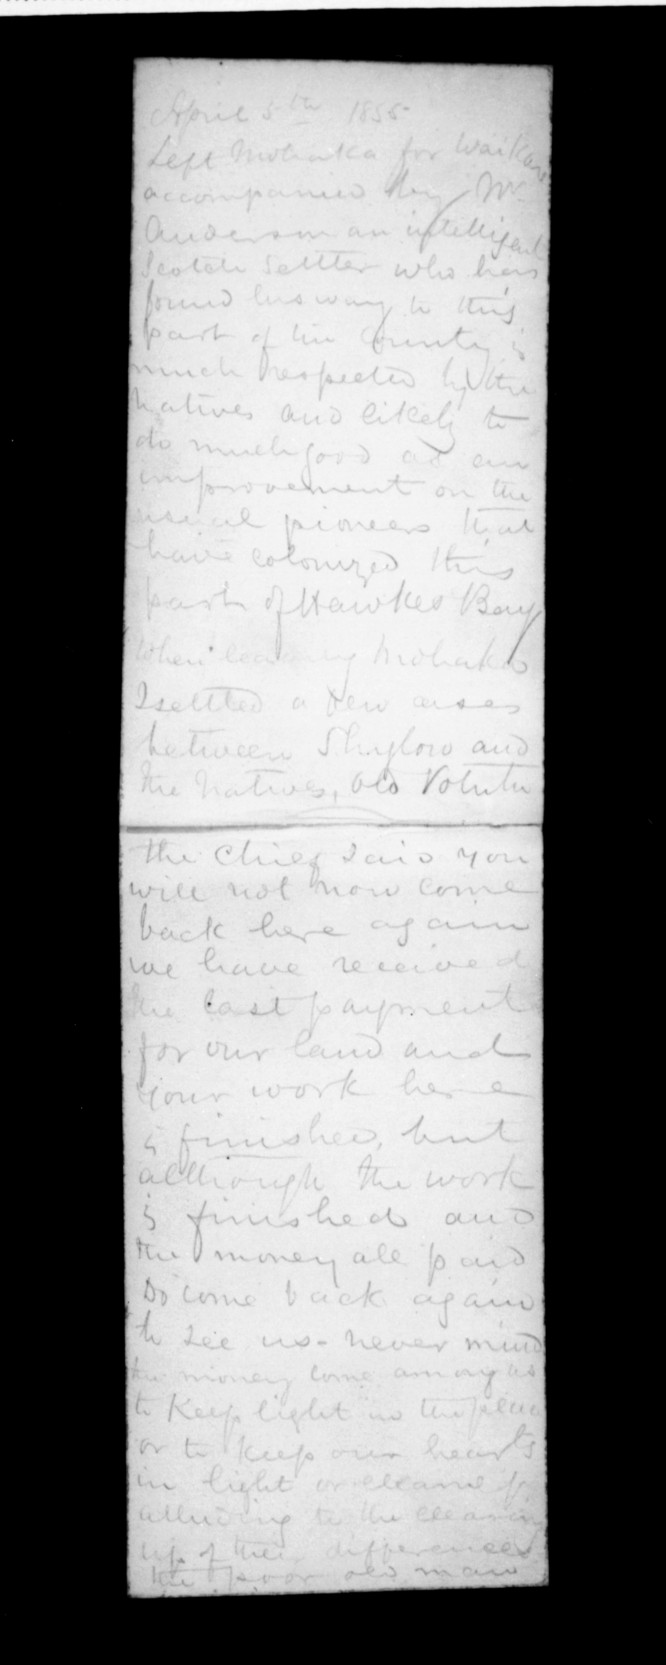 April 5th 1855
Left Mohaka for Waikare
accompanied by Mr.
Anderson an intelligent
Scotch Settler who has
found his way to this
part of the country is
much respected by the
natives and likely to
do much good as an
improvement on the
usual pioneers that
have colonized this
part of Hawkes Bay
When leaving Mohaka
I settled a few cases
between and
the Natives, Old
the Chief said you
will not now come
back here again
we have received
the last payment
for our land and
your work here
is finished, but
although the work
is finished and
the money all paid
Do come back again
to see us - never mind
the money come among us
to keep light in the place
or to keep our hearts
in light or
alluding to the clearing
up of their differences
the poor old man